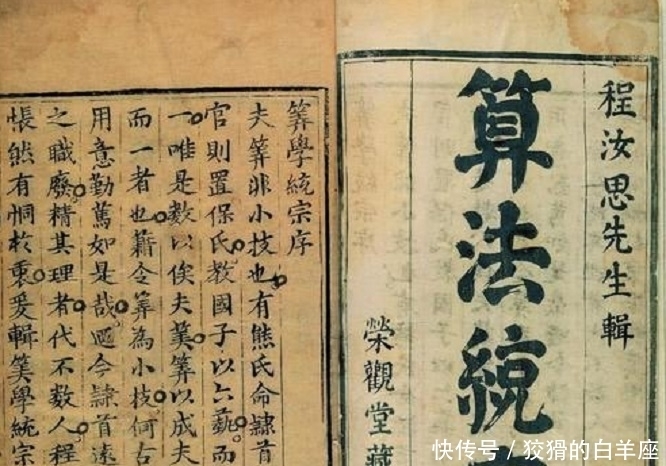 程汝思先生輯
算法統
榮觀堂藏
筭學統宗序
夫筭非小技也有熊氏命隷首
官則置保氏教國子以六藝而
一唯是數以俟夫筭以成夫
而一者也藉令筭為小技何古
用意勤篤如是哉廼今隷首遠
之職廢精其理者代不數人程
悵然有恫於衷爰輯筭學統宗
快传号/狡猾的白羊座